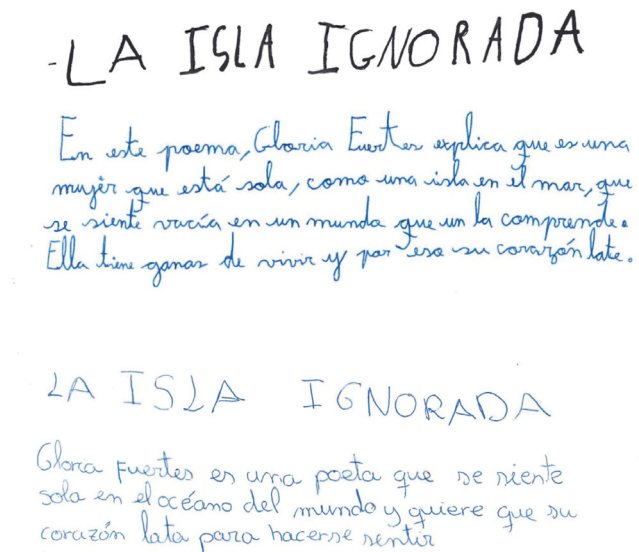 -LA ISLA IGNORADA
En este poema, Gloria Fuertes explica que es una
mujer que está sola, como una isla en el mar, que
se siente vacía en un mundo que un la comprende.
Ella tiene ganas de vivir y por eso su corazón late.
LA ISLA IGNORADA
Gloria Fuertes es una poeta que se siente
sola en el océano del mundo y quiere que su
corazón lata para hacerse sentir